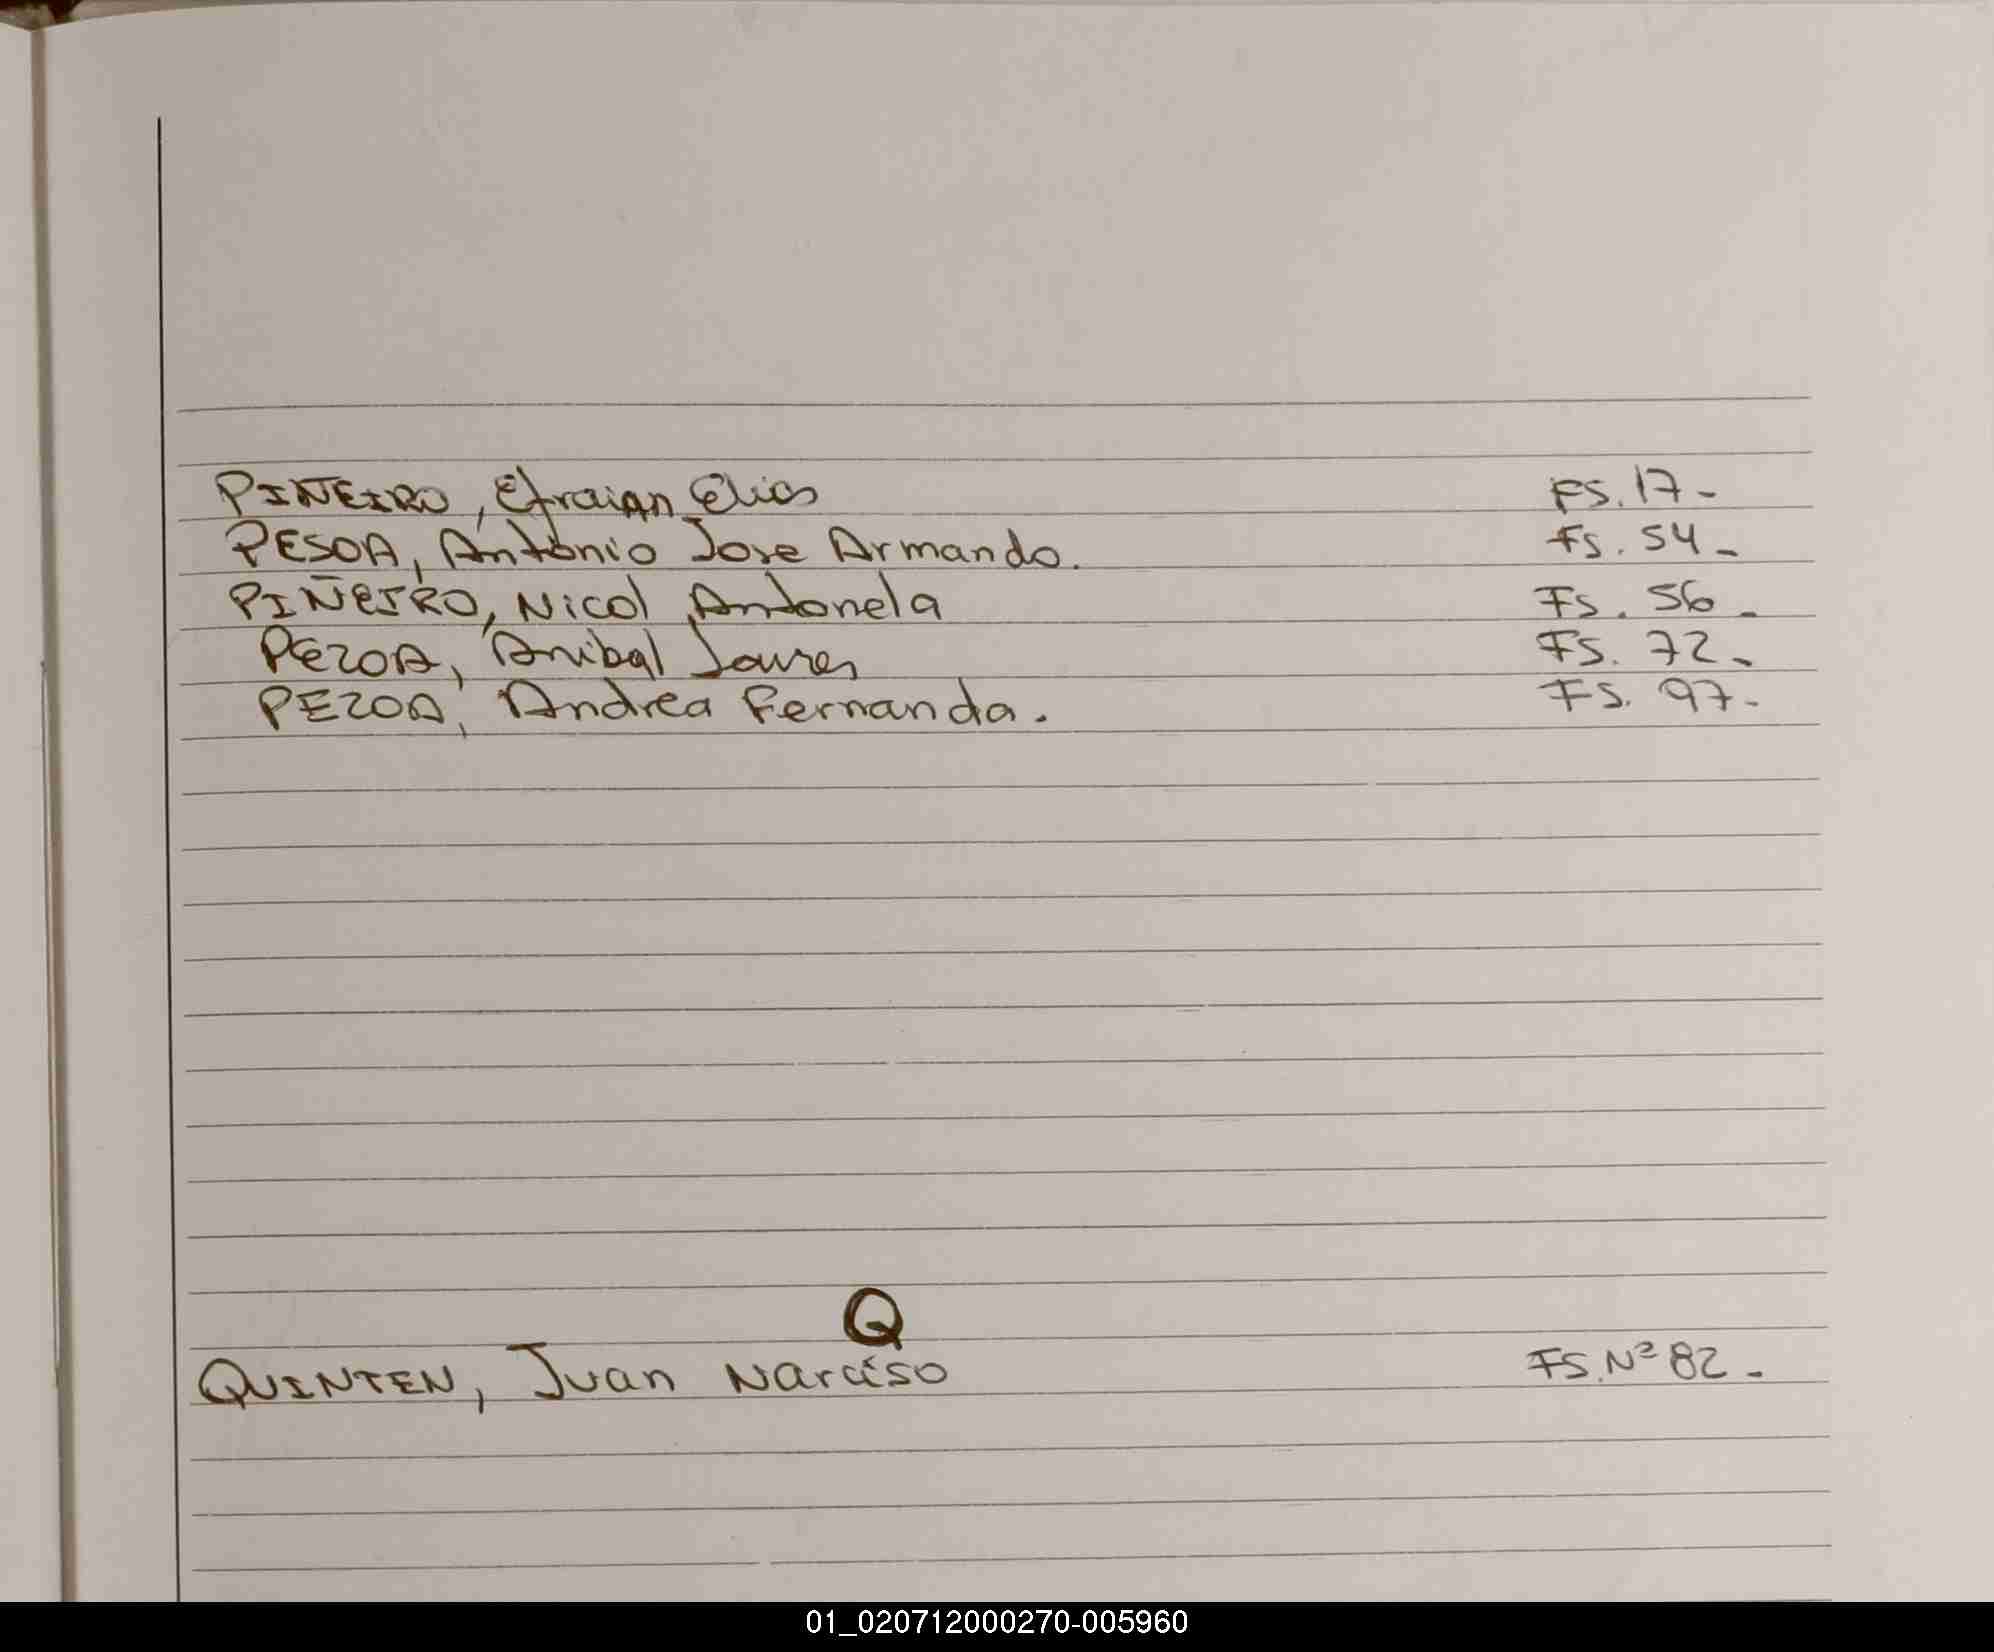 PIÑEIRO, Efraian Elias FS. 17-
PESOA, Antonio Jose Armando. Fs. 54-
PIÑEIRO, Nicol Antonela Fs. 56-
PEZOA, Anibal FS. 72-
PEZOA, Andrea Fernanda. FS. 97-
Q
QUINTEN, Juan Narciso FS. Nº 82-
01_020712000270-005960